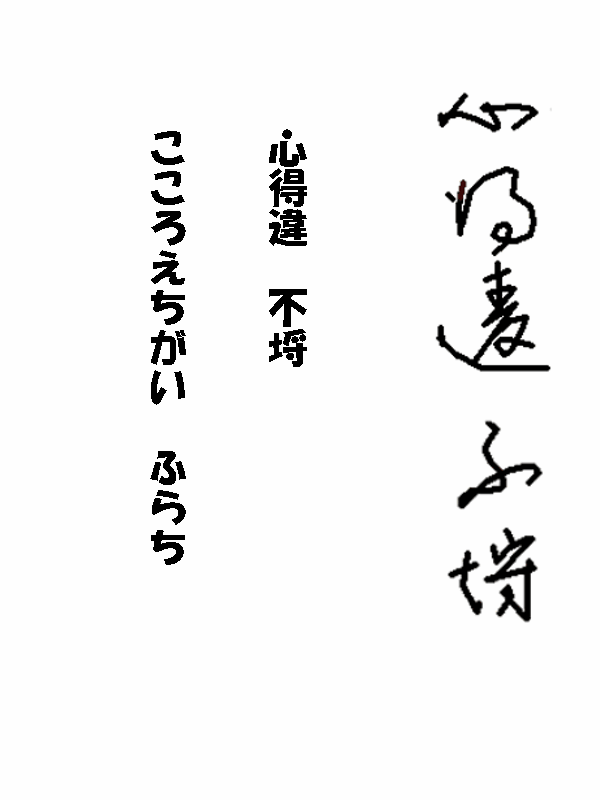 心得違 不埒
心得違　不埒
こころえちがい　ふらち